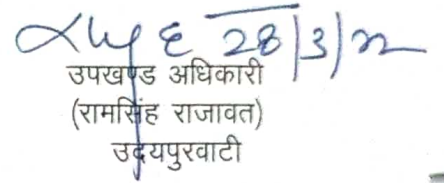 28/3/22
उपखण्ड अधिकारी
(रामसिंह राजावत)
उदयपुरवाटी